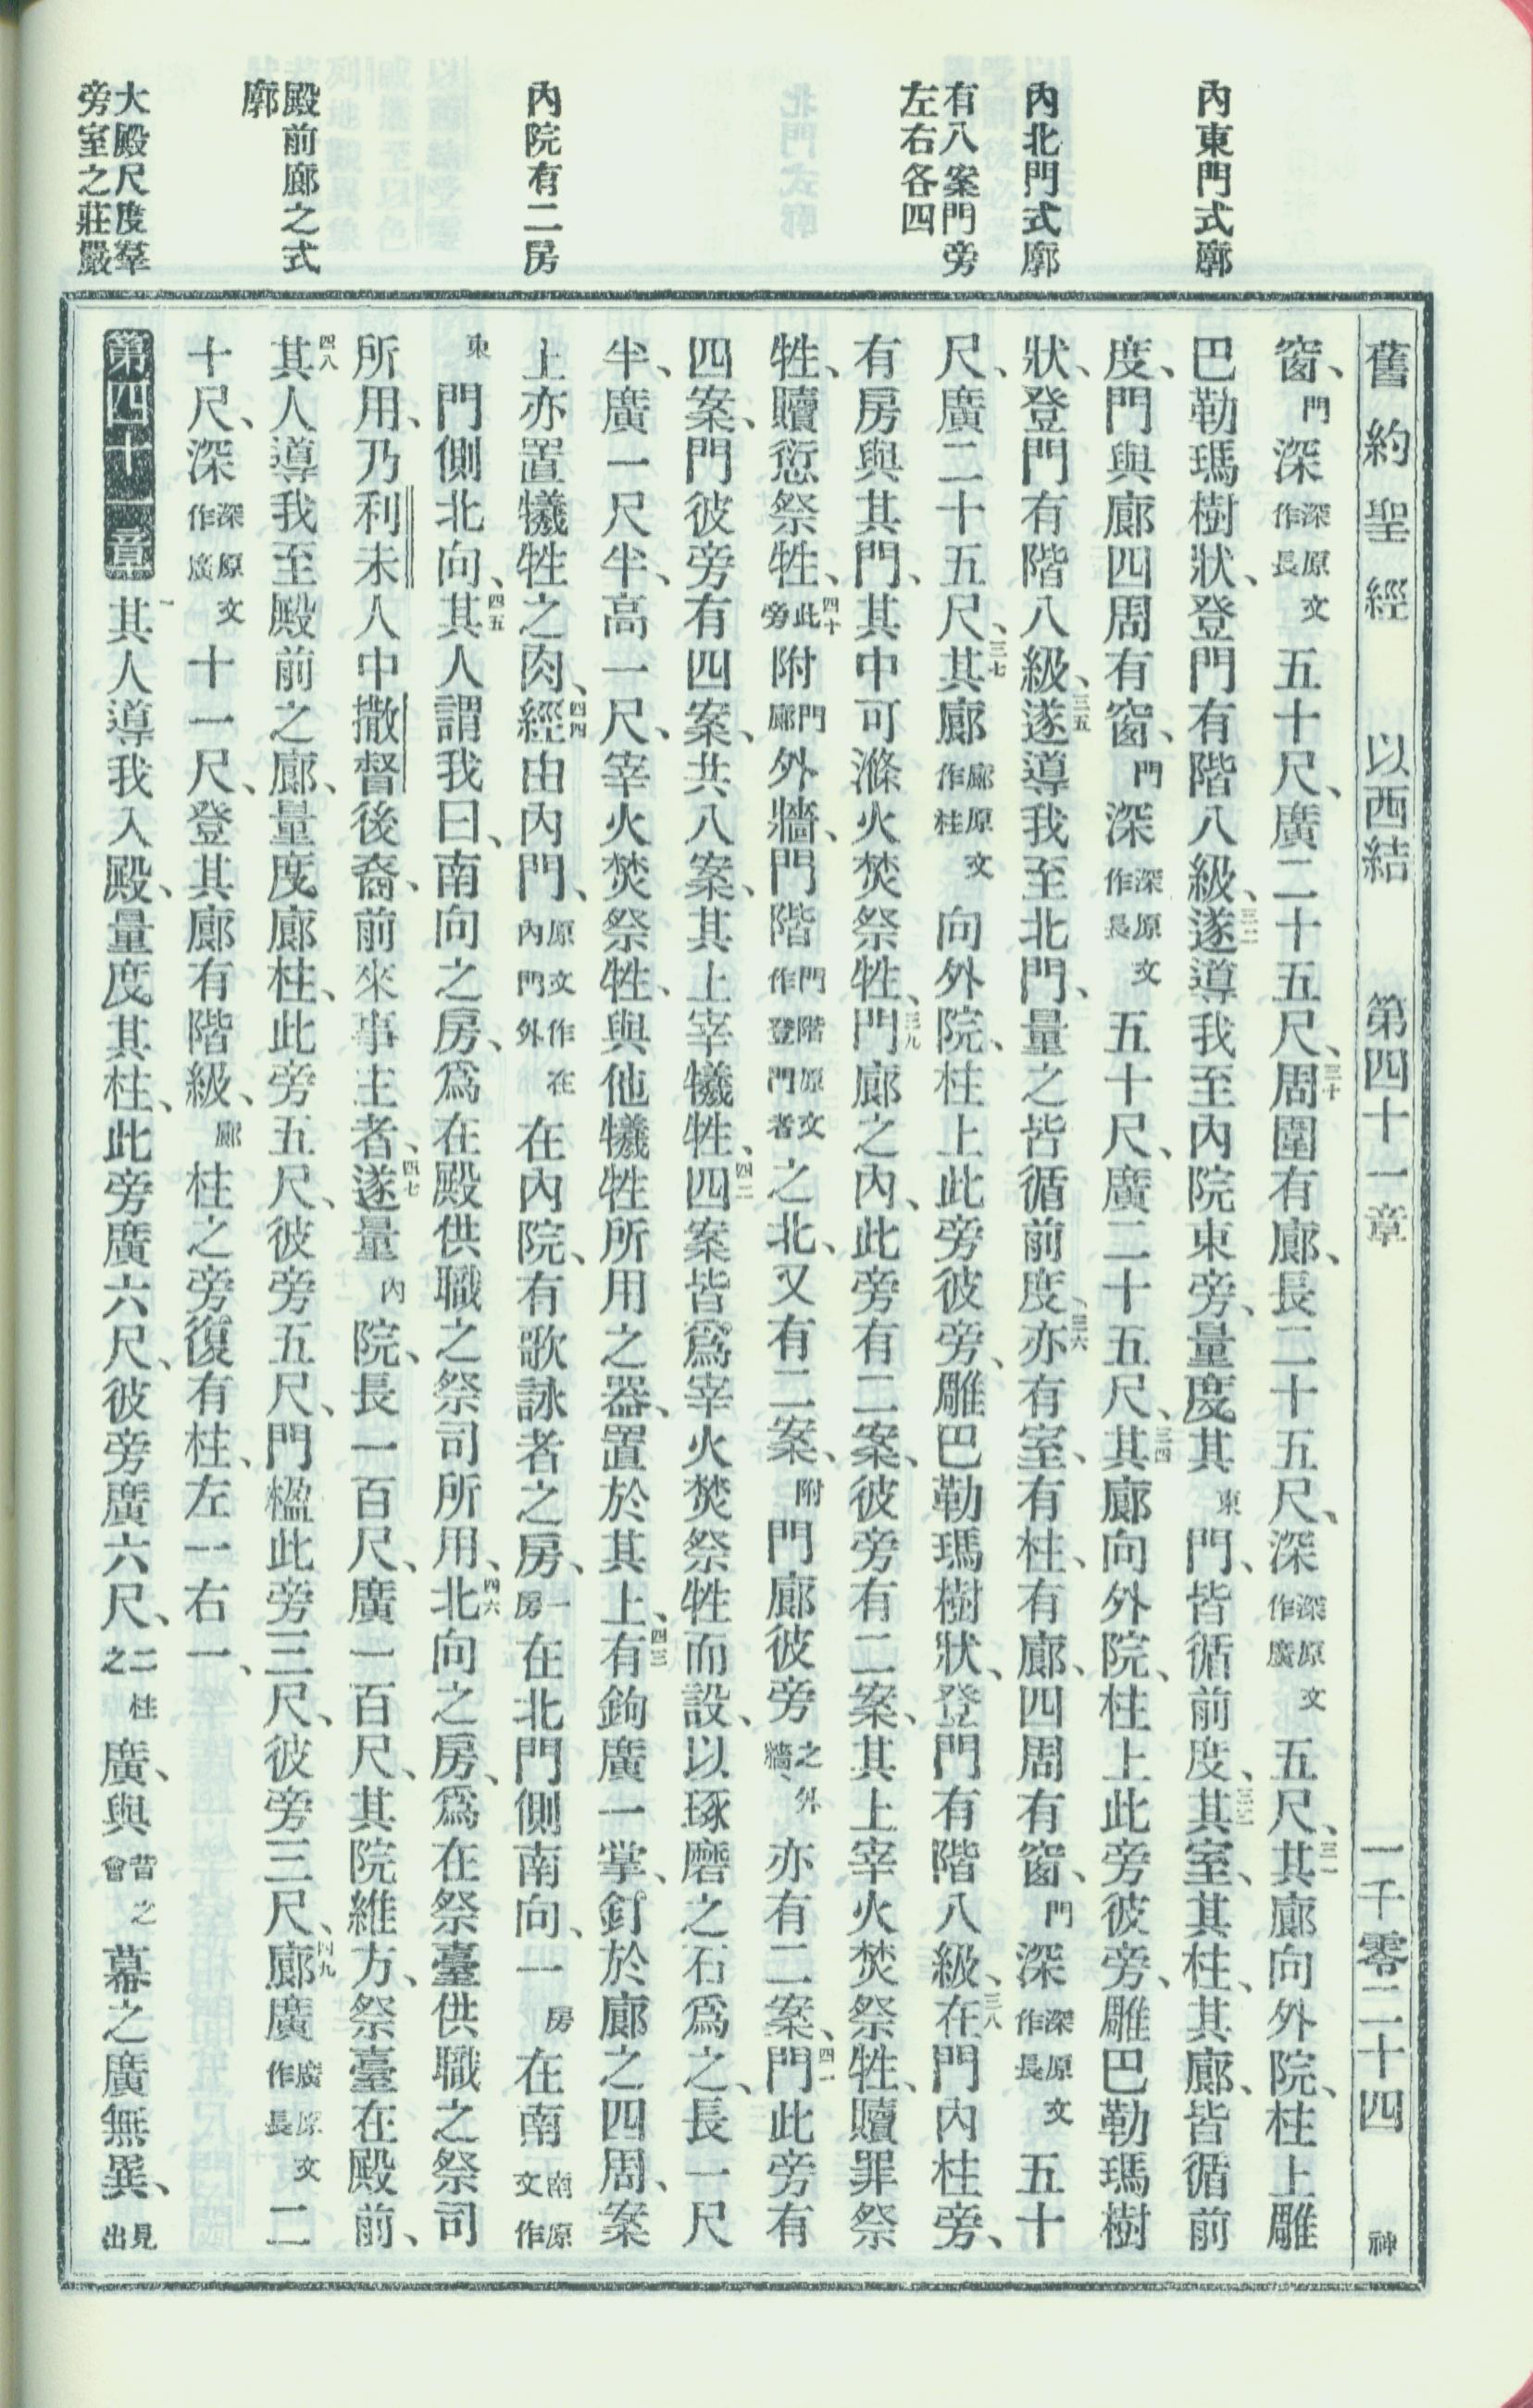 舊約聖經 以西結 第四十一章 一千零二十四 神
內東門式廓
內北門式廓
有八案門旁
左右各四
內院有二房
殿前廊之式
廓
大殿尺度羣
旁室之莊嚴
窗、門深深原文作長五十尺、廣二十五尺、三十周圍有廊、長二十五尺、深深原文作廣五尺、三一其廊向外院、柱上雕
巴勒瑪樹狀、登門有階八級、三二遂導我至內院東旁、量度其東門、皆循前度、三三其室、其柱、其廊、皆循前
度、門與廊四周有窗、門深深原文作長五十尺、廣二十五尺、三四其廊向外院、柱上此旁彼旁、雕巴勒瑪樹
狀、登門有階八級、三五遂導我至北門、量之皆循前度、三六亦有室、有柱、有廊、四周有窗、門深深原文作長五十
尺、廣二十五尺、三七其廊廊原文作柱向外院、柱上此旁彼旁、雕巴勒瑪樹狀、登門有階八級、三八在門內柱旁、
有房與其門、其中可滌火焚祭牲、三九門廊之內、此旁有二案、彼旁有二案、其上宰火焚祭牲、贖罪祭
牲、贖愆祭牲、四十此旁附門廊外牆、門階門階原文作登門者之北、又有二案、附門廊彼旁之外牆、亦有二案、四一門此旁有
四案、門彼旁有四案、共八案、其上宰犧牲、四二四案皆爲宰火焚祭牲而設、以琢磨之石爲之、長一尺
半、廣一尺半、高一尺、宰火焚祭牲、與他犧牲所用之器、置於其上、四三有鉤廣一掌、釘於廊之四周、案
上亦置犧牲之肉、四四經由內門、原文作在內門外在內院、有歌詠者之房、一房在北門側南向、一房在南南原文作
東門側北向、四五其人謂我曰、南向之房、爲在殿供職之祭司所用、四六北向之房、爲在祭臺供職之祭司
所用、乃利未人中撒督後裔、前來事主者、四七遂量內院、長一百尺、廣一百尺、其院維方、祭臺在殿前、
四八其人導我至殿前之廊、量度廊柱、此旁五尺、彼旁五尺、門楹此旁三尺、彼旁三尺、四九廊廣廣原文作長二
十尺、深深原文作廣十一尺、登其廊有階級、廊柱之旁復有柱、左一右一、
第四十一章 一其人導我入殿、量度其柱、此旁廣六尺、彼旁廣六尺、二柱之廣、與昔之會幕之廣無異、見出